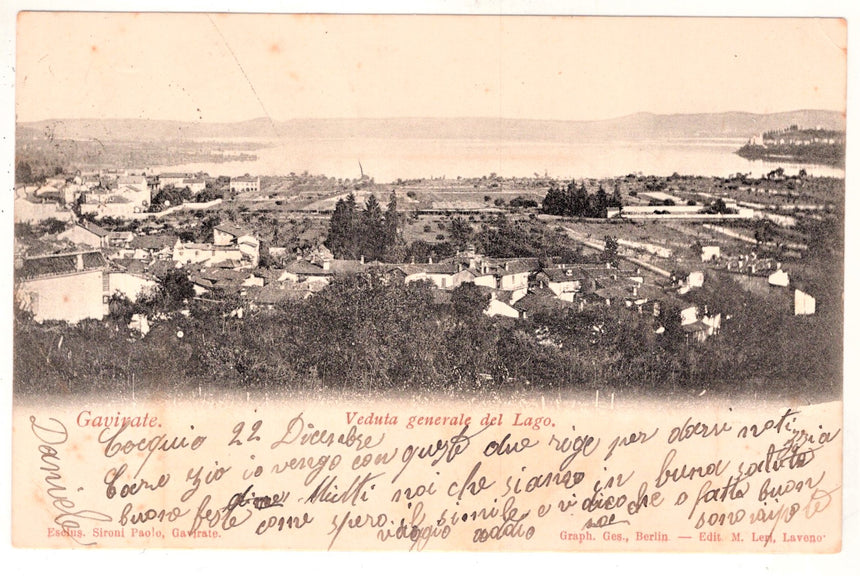 Gavirate.
Veduta generale del Lago.
Cocquio 22 Dicembre
Caro Zio io vengo con queste due rige per darvi notizzia
buono feste Miei noi che siamo in buna salute
come spero il simile e vi dico che o fatta buon
viaggio addio sono
Daniele
Esclus. Sironi Paolo, Gavirate.
Graph. Ges., Berlin. — Edit. M. Leri, Laveno